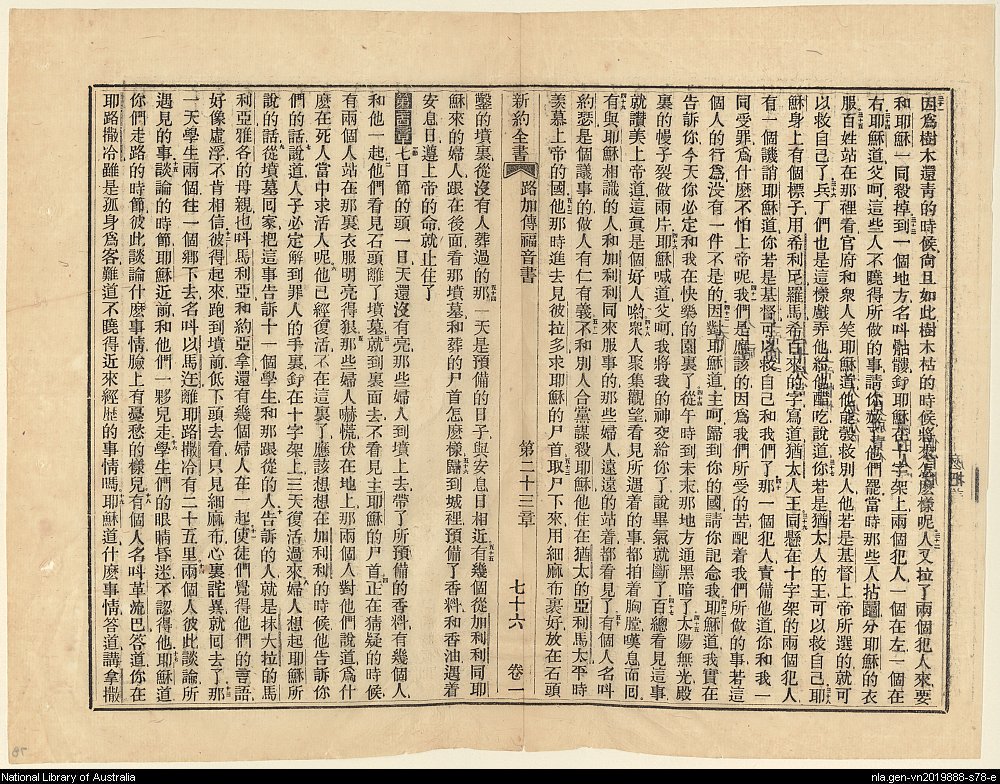 因爲樹木還青的時候尙且如此樹木枯的時候將來怎麽樣呢人又拉了兩個犯人來要
和耶穌一同殺掉到一個地方名呌骷髏釘耶穌在十字架上兩個犯人一個在左一個在
右耶穌道父呵這些人不曉得所做的事請你放了他們罷當時那些人拈鬮分耶穌的衣
服百姓站在那裡看官府和衆人笑耶穌道他能彀救別人他若是基督上帝所選的就可
以救自己了兵丁們也是這樣戲弄他給他醋吃說道你若是猶太人的王可以救自己耶
穌身上有個標子用希利尼羅馬希百來的字寫道猶太人王同懸在十字架的兩個犯人
有一個譏誚耶穌道你若是基督可以救自己和我們了那一個犯人責備他道你和我一
同受罪爲什麽不怕上帝呢我們是應該的因爲我們所受的苦配着我們所做的事若這
個人的行爲没有一件不是的因對耶穌道主呵歸到你的國請你記念我耶穌道我實在
告訴你今天你必定和我在快樂的園裏了從午時到未末那地方通黑暗了太陽無光殿
裏的幔子裂做兩片耶穌喊道父呵我將我的神交給你了說畢氣就斷了百總看見這事
就讚美上帝道這眞是個好人喲衆人聚集觀望看見所遇着的事都拍着胸膛嘆息而囘
有與耶穌相識的人和加利利同來服事的那些婦人遠遠的站着都看見了有個人名呌
約瑟是個議事的做人有仁有義不和別人合黨謀殺耶穌他住在猶太的亞利馬太平時
羡慕上帝的國他那時進去見彼拉多求耶穌的尸首取尸下來用細麻布裹好放在石頭
新約全書 路加傳福音書 第二十三章 七十六 卷一
鑿的墳裏從没有人葬過的那一天是預備的日子與安息日相近有幾個從加利利同耶
穌來的婦人跟在後面看那墳墓和葬的尸首怎麽樣歸到城裡預備了香料和香油遇着
安息日遵上帝的命就止住了
第二十四章七日節的頭一日天還没有亮那些婦人到墳上去帶了所預備的香料有幾個人
和他一起他們看見石頭離了墳墓就到裏面去不看見主耶穌的尸首正在猜疑的時候
有兩個人站在那裏衣服明亮得狠那些婦人嚇慌伏在地上那兩個人對他們說道爲什
麽在死人當中求活人呢他已經復活不在這裏了應該想想在加利利的時候他告訴你
們的話說道人子必定解到罪人的手裏釘在十字架上三天復活過來婦人想起耶穌所
說的話從墳墓囘家把這事告訴十一個學生和那跟從的人告訴的人就是抹大拉的馬
利亞亞各的母親也呌馬利亞和約亞拿還有幾個婦人在一起使徒們覺得他們的言語
好像虛浮不肯相信彼得起來跑到墳前低下頭去看只見細麻布心裏詫異就囘去了那
一天學生兩個往一個鄉下去名呌以馬迕離耶路撒冷有二十五里兩個人彼此談論所
遇見的事談論的時節耶穌近前和他們一夥兒走學生們的眼睛昏迷不認得他耶穌道
你們走路的時節彼此談論什麽事情臉上有憂愁的樣兒有個人名呌革流巴答道你在
耶路撒冷雖是孤身爲客難道不曉得近來經歷的事情嗎耶穌道什麽事情答道講拿撒
National Library of Australia
nla.gen-vn2019888-s78-e